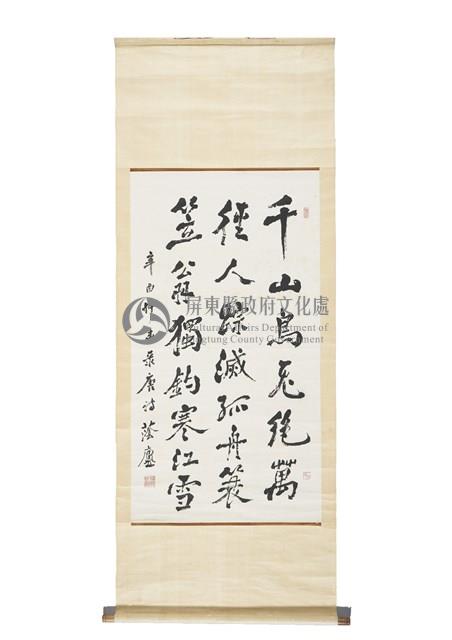 千山鳥飛絕萬
徑人踪滅孤舟簑
笠翁獨釣寒江雪
辛酉 唐詩 蔭廬
屏東縣政府文化處
Cultural Affairs Department of
Pingtung County Government